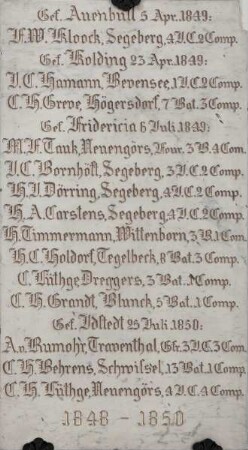 Gef. Auenbüll 5 Apr. 1849:
F. W. Kloock, Segeberg, 4 J. C. 2 Comp.
Gef. Kolding 23 Apr. 1849:
J. C. Hamann, Bevensee, 1 J. C. 2 Comp.
C. H. Greve, Högersdorf, 7 Bat. 3 Comp.
Gef. Fridericia 6 Juli. 1849:
M. F. Tauk, Neuengörs, 3 B. 4 Com.
J. C. Bornhöft, Segeberg, 3 J. C. 2 Comp.
H. J. Dörring, Segeberg, 4 J. C. 2 Comp.
H. A. Carstens, Segeberg, 4 J. C. 2 Comp.
H. Timmermann, Wittenborn, 3 B. 1 Com.
H. C. Holdorf, Tegelbeck, 8 Bat. 3 Comp.
C. Lüthge, Dreggers, 3 Bat. Comp.
C. H. Grandt, Blunck, 5 Bat. 1 Comp.
Gef. Idstedt 25 Juli. 1850:
A. v. Rumohr, Traventhal, Gfr. 3 J. C. 3 Com.
C. H. Behrens, Schwissel, 13 Bat. 1 Comp.
C. H. Lüthge, Neuengörs, 4 J. C. 4 Comp.
1848 - 1850